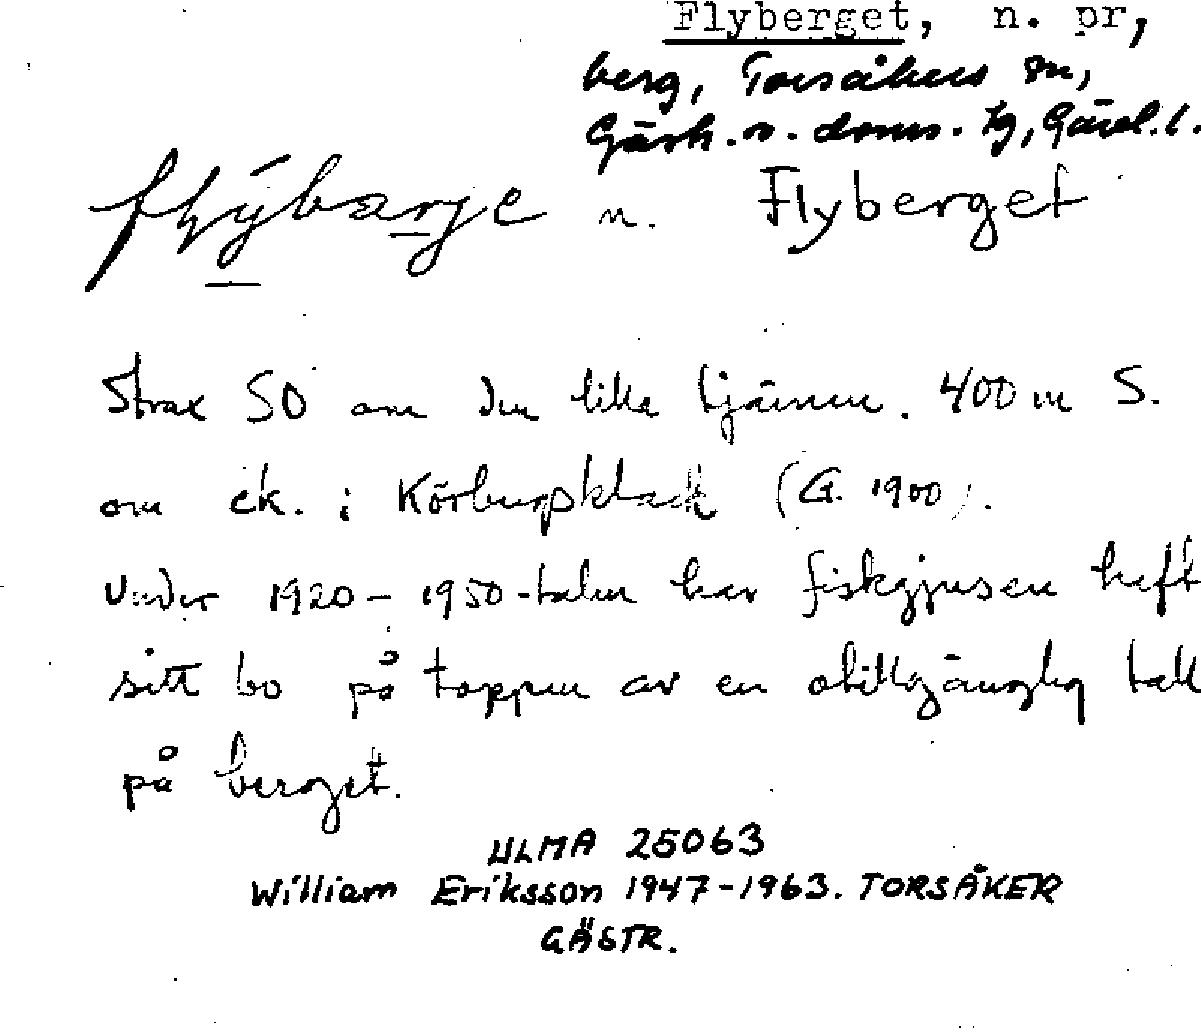 Flyberget, n. pr,
berg, Torsåkers sn,
Gästr. v. doms. tg, Gävl. l.
n. Flyberget
Strax SO om den lilla tjärnen. 400 m S.
om ek. i Körbergsklack (G. 1900).
Under 1920-1950-talen har fiskgjusen haft
sitt bo på toppen av en otillgänglig tall
på berget.
ULMA 25063
William Eriksson 1947-1963. TORSÅKER
GÄSTR.